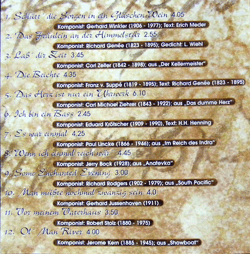 1. Schütt' die Sorgen in ein Gläschen Wein 4:05
Komponist: Gerhard Winkler (1906 - 1977); Text: Erich Meder
2. Das Fräulein an der Himmelstür 2.55
Komponist: Richard Genée (1823 - 1895); Gedicht L. Wiehl
3. Laß' dir Zeit 3.05
Komponist: Carl Zeller (1842 - 1898); aus „Der Kellermeister"
4. Die Beichte 4.35
Komponist: Franz v. Suppé (1819 - 1895); Text: Richard Genée (1823 - 1895)
5. Das Herz ist nur ein Uhrwerk 6.10
Komponist: Carl Michael Ziehrer (1843 - 1922); aus „Das dumme Herz"
6. Ich bin ein Bass 2.45
Komponist: Eduard Kölscher (1909 - 1990); Text: H.H. Henning
7. Es war einmal 4.25
Komponist: Paul Lincke (1866 - 1946); aus „Im Reich des Indra"
8. Wenn ich einmal reich wär' 4.45
Komponist: Jerry Bock (1928); aus „Anatevka"
9. Some Enchanted Evening 3.00
Komponist: Richard Rodgers (1902 - 1979); aus „South Pacific"
10. Man müßte nochmal zwanzig sein 4.40
Komponist: Gerhard Jussenhoven (1911)
11. Vor meinem Vaterhaus 3.50
Komponist: Robert Stolz (1880 - 1975)
12. Ol' Man River 4.00
Komponist: Jerome Kern (1885 - 1945); aus „Showboat"